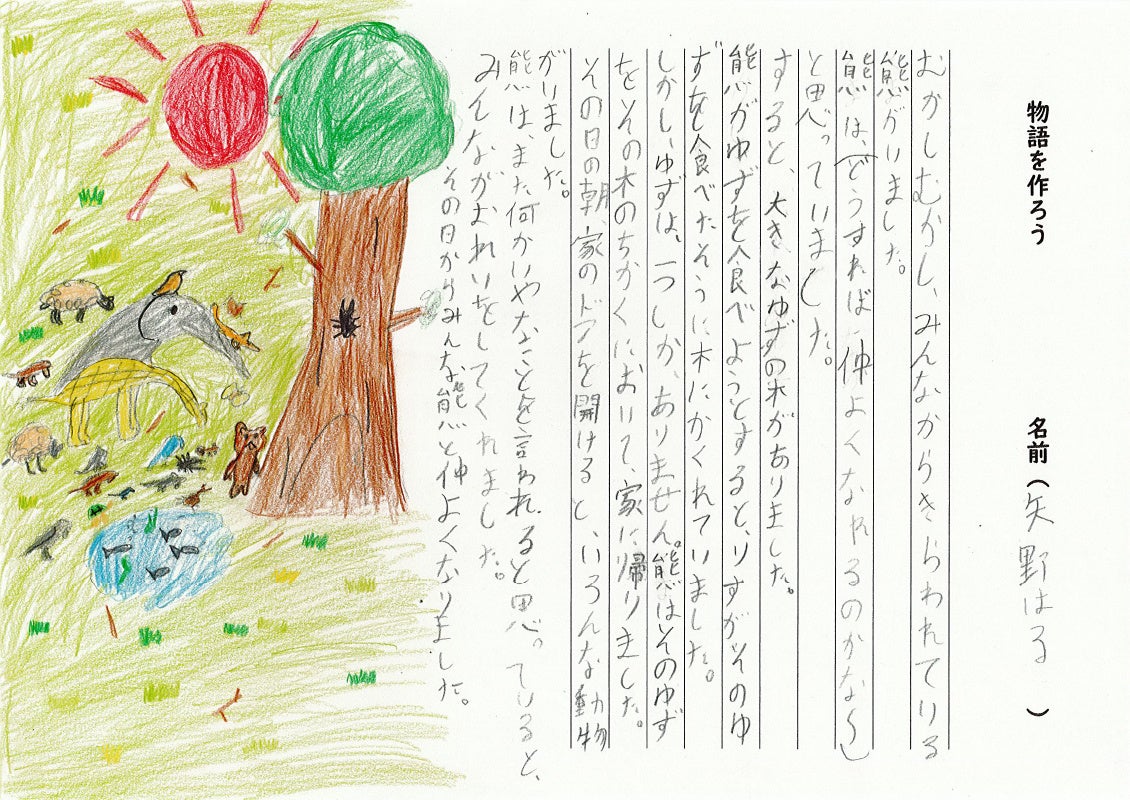 物語を作ろう
名前（矢野はる　）
むかしむかし、みんなからきらわれている
熊がいました。
熊は、「どうすれば仲よくなれるのかな〜」
と思っていました。
すると、大きなゆずの木がありました。
熊がゆずを食べようとすると、りすがそのゆ
ずを食べたそうに木にかくれていました。
しかし、ゆずは、一つしか、ありません。熊はそのゆず
をその木のちかくにおいて、家に帰りました。
その日の朝、家のドアを開けると、いろんな動物
がいました。
熊は、また何かいやなことを言われると思っていると、
みんながおれいをしてくれました。
その日からみんな熊と仲よくなりました。